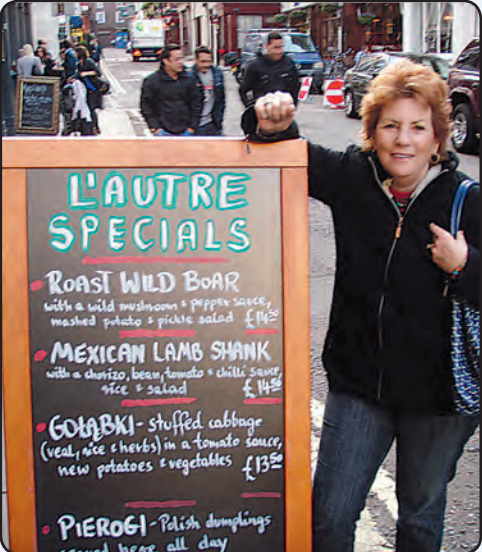 L'AUTRE
SPECIALS
ROAST WILD BOAR
with a wild mushroom & pepper sauce,
mashed potato & pickle salad £14.50
MEXICAN LAMB SHANK
with a chorizo, bean, tomato & chilli sauce,
rice & salad £14.50
GOŁĄBKI - stuffed cabbage
(veal, rice & herbs) in a tomato sauce,
new potatoes & vegetables £13.50
PIEROGI - Polish dumplings
served here all day